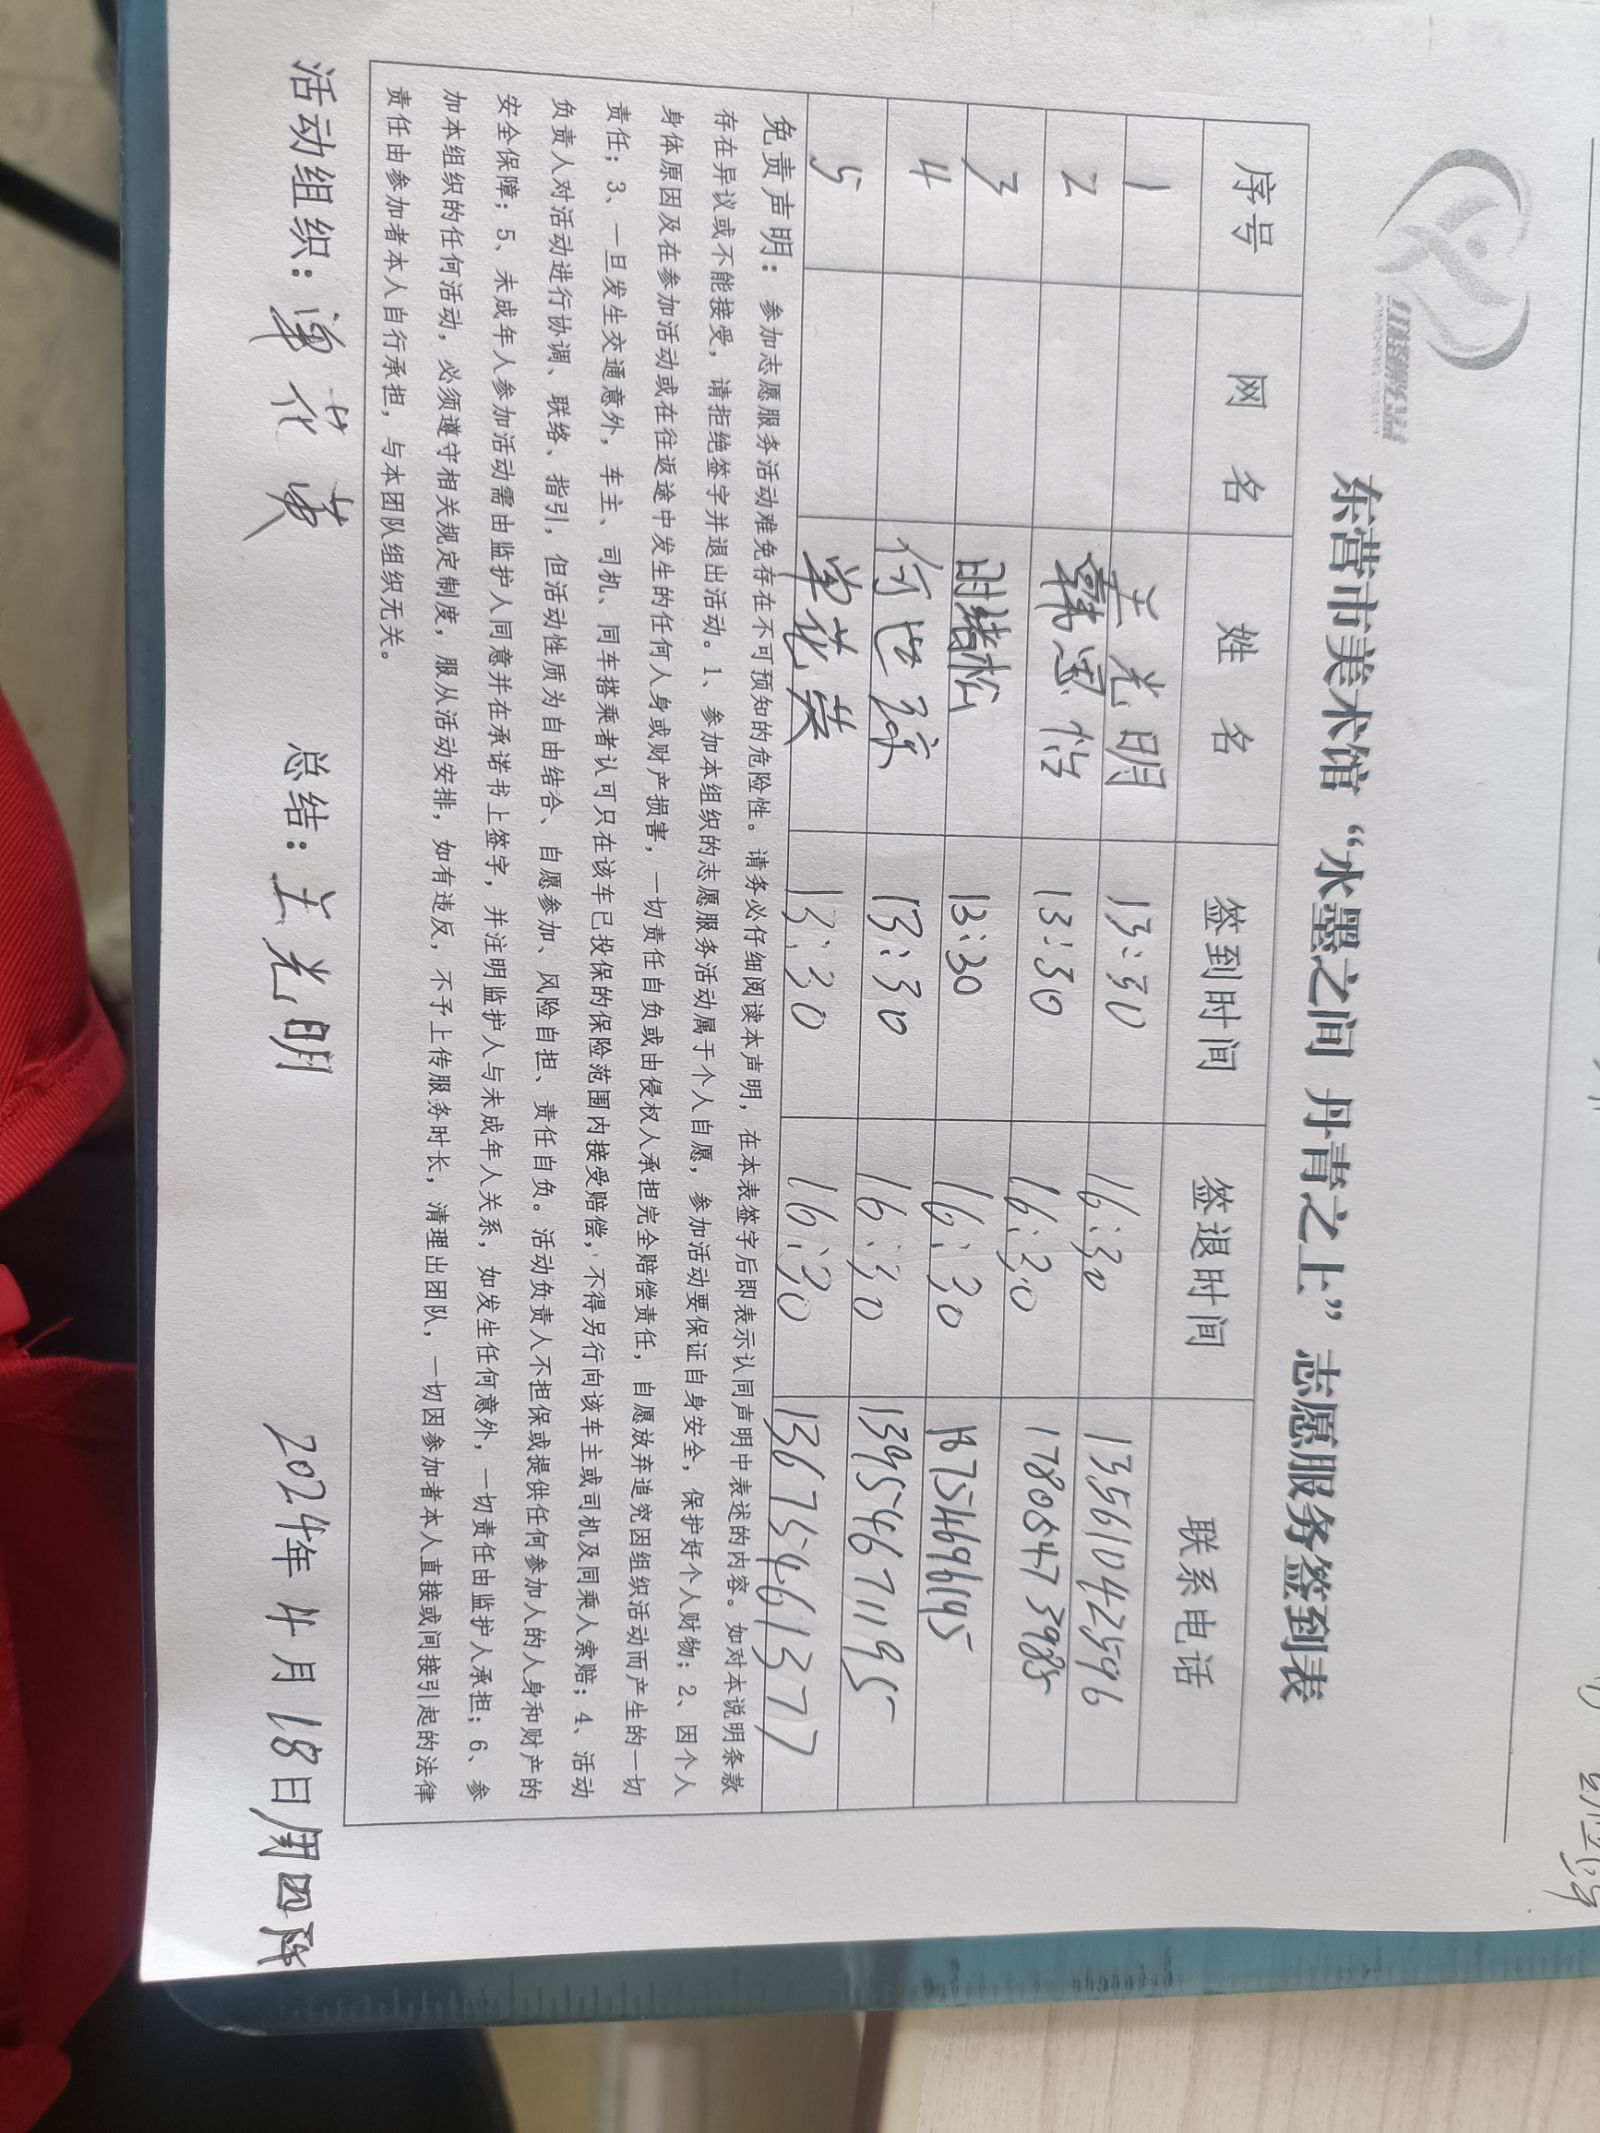 东营市美术馆“水墨之间 丹青之上”志愿服务签到表
序号 网 名 姓 名 签到时间 签退时间 联系电话
1 光明 13:30 16:30 13561042596
2 韩思怡 13:30 16:30 17805473985
3 松 13:30 16:30 18754696195
4 何 13:30 16:30 13954671195
5 单花英 13:30 16:30 13675461377
免责声明：参加志愿服务活动难免存在不可预知的危险性。请务必仔细阅读本声明，在本表签字后即表示认同声明中表述的内容。如对本说明条款
存在异议或不能接受，请拒绝签字并退出活动。1、参加本组织的志愿服务活动属于个人自愿，参加活动要保证自身安全，保护好个人财物；2、因个人
身体原因及在参加活动或在往返途中发生的任何人身或财产损害，一切责任自负或由侵权人承担完全赔偿责任，自愿放弃追究因组织活动而产生的一切
责任；3、一旦发生交通意外，车主、司机、同车搭乘者认可只在该车已投保的保险范围内接受赔偿，不得另行向该车主或司机及同乘人索赔；4、活动
负责人对活动进行协调、联络、指引，但活动性质为自由结合、自愿参加、风险自担、责任自负。活动负责人不担保或提供任何参加人的人身和财产的
安全保障；5、未成年人参加活动需由监护人同意并在承诺书上签字，并注明监护人与未成年人关系，如发生任何意外，一切责任由监护人承担；6、参
加本组织的任何活动，必须遵守相关规定制度，服从活动安排，如有违反，不予上传服务时长，清理出团队，一切因参加者本人直接或间接引起的法律
责任由参加者本人自行承担，与本团队组织无关。
活动组织：单花英 总结：光明 2024年4月18日/周四